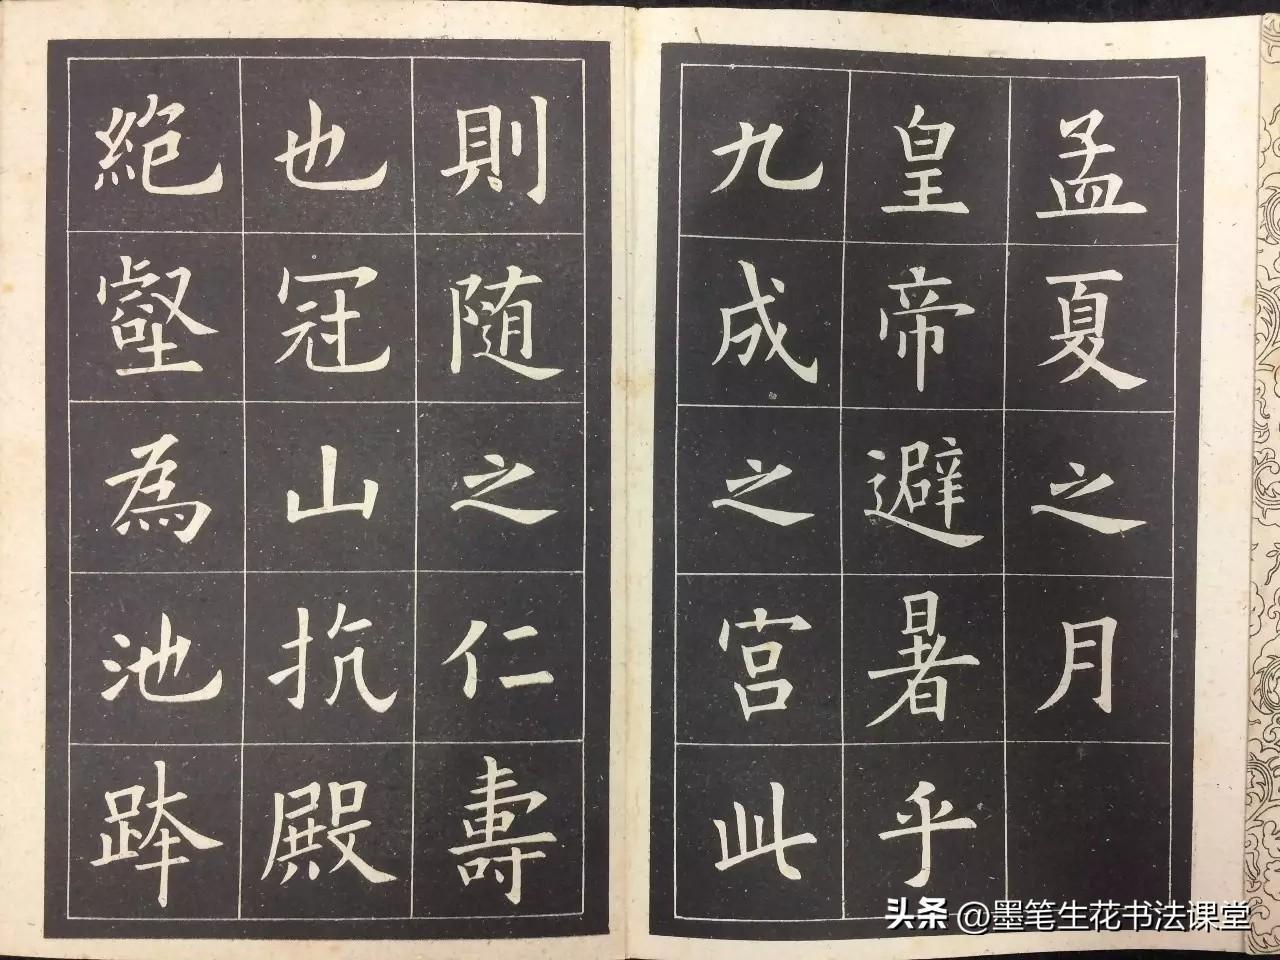 孟夏之月
皇帝避暑乎
九成之宫此
則隨之仁壽
也冠山抗殿
絕壑為池跨
头条 @墨笔生花书法课堂